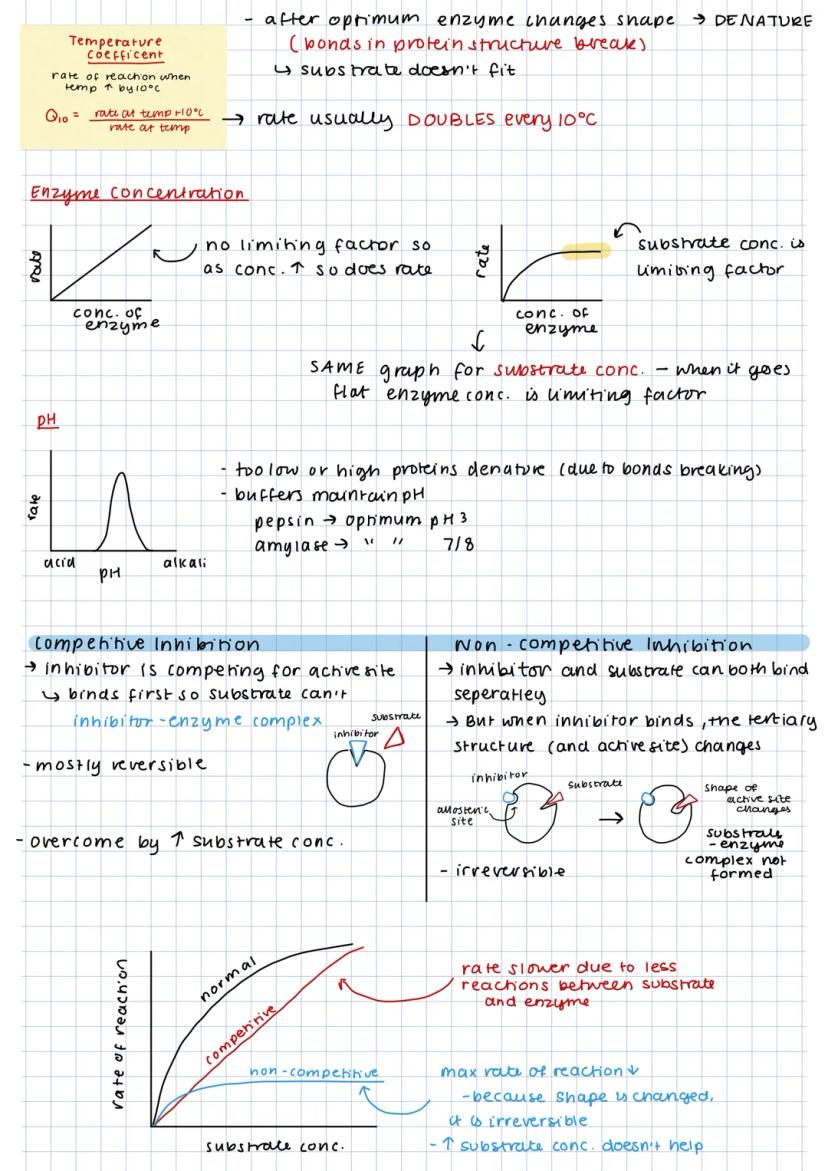 - after optimum enzyme changes shape → DENATURE
(bonds in protein structure break)
↳ substrate doesn't fit
Temperature
Coefficent
rate of reaction when
temp ↑ by 10°C
Q10 = rate at temp +10°C
rate at temp
→ rate usually DOUBLES every 10°C
Enzyme Concentration
rate
conc. of
enzyme
no limiting factor so
as conc. ↑ so does rate
rate
conc. of
enzyme
substrate conc. is
limiting factor
SAME graph for substrate conc. - when it goes
flat enzyme conc. is limiting factor
pH
rate
acid
pH
alkali
- too low or high proteins denature (due to bonds breaking)
- buffers maintain pH
pepsin → optimum pH 3
amylase → " " 7/8
Competitive Inhibition
→ inhibitor is competing for active site
↳ binds first so substrate can't
inhibitor-enzyme complex
substrate
inhibitor
- mostly reversible
- overcome by ↑ substrate conc.
Non-competitive Inhibition
→ inhibitor and substrate can both bind
seperatley
→ But when inhibitor binds, the tertiary
structure (and active site) changes
inhibitor
substrate
allosteric
site
→
shape of
active site
changes
substrate
- enzyme
complex not
formed
- irreversible
rate of reaction
normal
competitive
non-competitive
substrate conc.
rate slower due to less
reactions between substrate
and enzyme
max rate of reaction ↓
- because shape is changed,
it is irreversible
- ↑ substrate conc. doesn't help